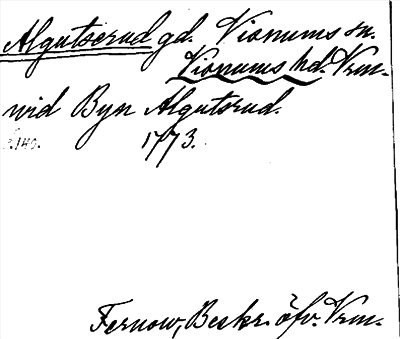 Algutserud gd. Visnums sn.
Visnums hd. Vrm.
vid Byn Algutsrud.
s. 140. 1773.
Fernow, Beskr. öfv. Vrm.